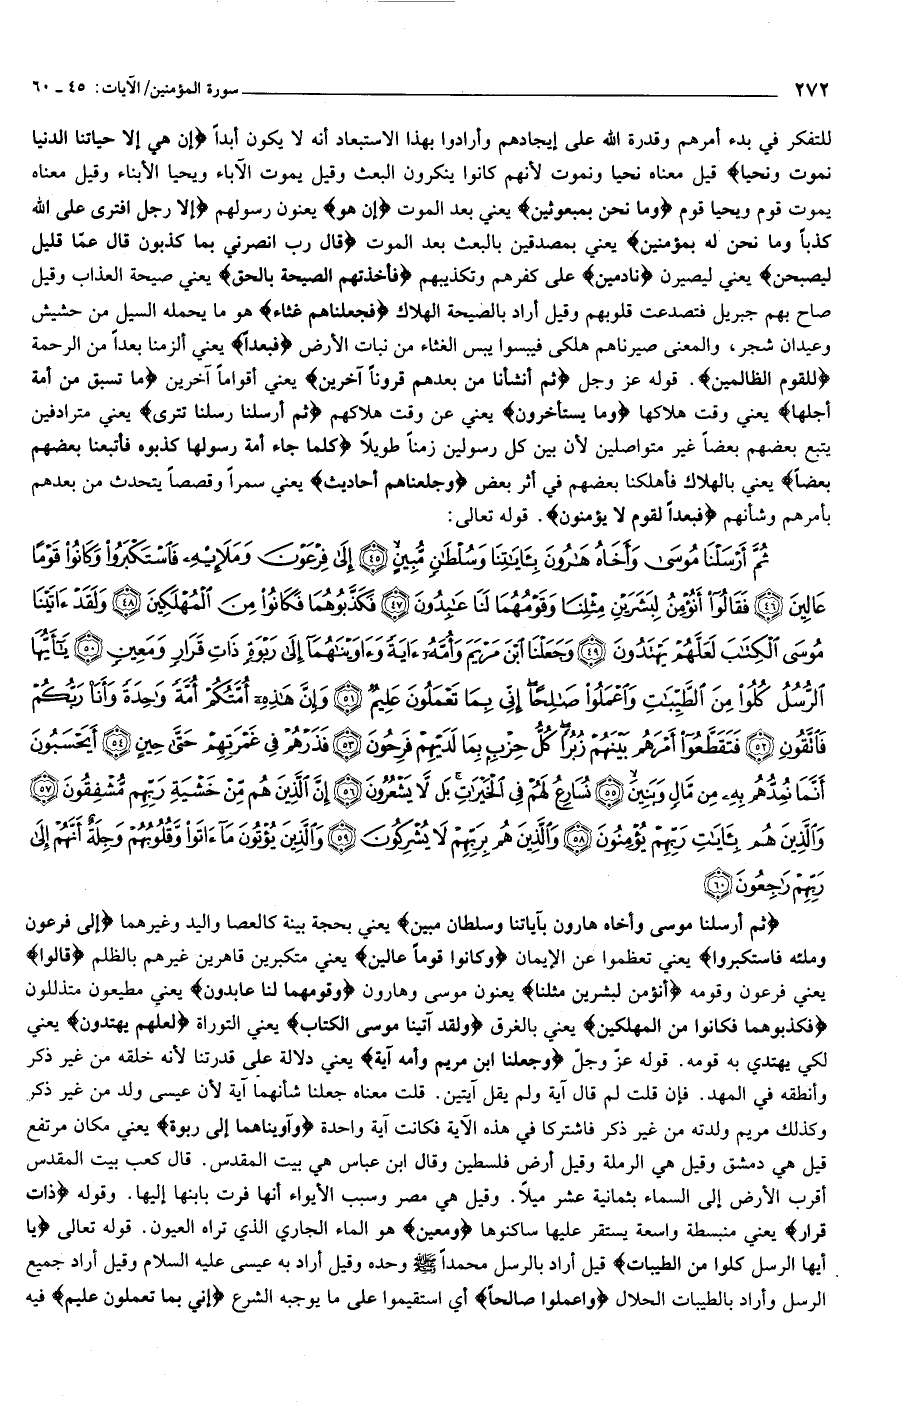 ٢٧٢ سورة المؤمنين/ الآيات: ٤٥ ــ ٦٠
للتفكر في بدء أمرهم وقدرة الله على إيجادهم وأرادوا بهذا الاستبعاد أنه لا يكون أبداً ﴿إن هي إلا حياتنا الدنيا
نموت ونحيا﴾ قيل معناه نحيا ونموت لأنهم كانوا ينكرون البعث وقيل يموت الآباء ويحيا الأبناء وقيل معناه
يموت قوم ويحيا قوم ﴿وما نحن بمبعوثين﴾ يعني بعد الموت ﴿إن هو﴾ يعنون رسولهم ﴿إلا رجل افترى على الله
كذباً وما نحن له بمؤمنين﴾ يعني بمصدقين بالبعث بعد الموت ﴿قال رب انصرني بما كذبون قال عمّا قليل
ليصبحن﴾ يعني ليصيرن ﴿نادمين﴾ على كفرهم وتكذيبهم ﴿فأخذتهم الصيحة بالحق﴾ يعني صيحة العذاب وقيل
صاح بهم جبريل فتصدعت قلوبهم وقيل أراد بالصيحة الهلاك ﴿فجعلناهم غثاء﴾ هو ما يحمله السيل من حشيش
وعيدان شجر، والمعنى صيرناهم هلكى فيبسوا يبس الغثاء من نبات الأرض ﴿فبعداً﴾ يعني ألزمنا بعداً من الرحمة
﴿للقوم الظالمين﴾. قوله عز وجل ﴿ثم أنشأنا من بعدهم قروناً آخرين﴾ يعني أقواماً آخرين ﴿ما تسبق من أمة
أجلها﴾ يعني وقت هلاكها ﴿وما يستأخرون﴾ يعني عن وقت هلاكهم ﴿ثم أرسلنا رسلنا تترى﴾ يعني مترادفين
يتبع بعضهم بعضاً غير متواصلين لأن بين كل رسولين زمناً طويلاً ﴿كلما جاء أمة رسولها كذبوه فأتبعنا بعضهم
بعضاً﴾ يعني بالهلاك فأهلكنا بعضهم في أثر بعض ﴿وجلعناهم أحاديث﴾ يعني سمراً وقصصاً يتحدث من بعدهم
بأمرهم وشأنهم ﴿فبعداً لقوم لا يؤمنون﴾. قوله تعالى:
ثُمَّ أَرْسَلْنَا مُوسَىٰ وَأَخَاهُ هَٰرُونَ بِـَٔايَٰتِنَا وَسُلْطَٰنٍ مُّبِينٍ ﴿٤٥﴾ إِلَىٰ فِرْعَوْنَ وَمَلَإِيْهِۦ فَٱسْتَكْبَرُوا۟ وَكَانُوا۟ قَوْمًا
عَالِينَ ﴿٤٦﴾ فَقَالُوٓا۟ أَنُؤْمِنُ لِبَشَرَيْنِ مِثْلِنَا وَقَوْمُهُمَا لَنَا عَٰبِدُونَ ﴿٤٧﴾ فَكَذَّبُوهُمَا فَكَانُوا۟ مِنَ ٱلْمُهْلَكِينَ ﴿٤٨﴾ وَلَقَدْ ءَاتَيْنَا
مُوسَى ٱلْكِتَٰبَ لَعَلَّهُمْ يَهْتَدُونَ ﴿٤٩﴾ وَجَعَلْنَا ٱبْنَ مَرْيَمَ وَأُمَّهُۥٓ ءَايَةً وَءَاوَيْنَٰهُمَآ إِلَىٰ رَبْوَةٍ ذَاتِ قَرَارٍ وَمَعِينٍ ﴿٥٠﴾ يَٰٓأَيُّهَا
ٱلرُّسُلُ كُلُوا۟ مِنَ ٱلطَّيِّبَٰتِ وَٱعْمَلُوا۟ صَٰلِحًا إِنِّى بِمَا تَعْمَلُونَ عَلِيمٌ ﴿٥١﴾ وَإِنَّ هَٰذِهِۦٓ أُمَّتُكُمْ أُمَّةً وَٰحِدَةً وَأَنَا۠ رَبُّكُمْ
فَٱتَّقُونِ ﴿٥٢﴾ فَتَقَطَّعُوٓا۟ أَمْرَهُم بَيْنَهُمْ زُبُرًا كُلُّ حِزْبٍۭ بِمَا لَدَيْهِمْ فَرِحُونَ ﴿٥٣﴾ فَذَرْهُمْ فِى غَمْرَتِهِمْ حَتَّىٰ حِينٍ ﴿٥٤﴾ أَيَحْسَبُونَ
أَنَّمَا نُمِدُّهُم بِهِۦ مِن مَّالٍ وَبَنِينَ ﴿٥٥﴾ نُسَارِعُ لَهُمْ فِى ٱلْخَيْرَٰتِ بَل لَّا يَشْعُرُونَ ﴿٥٦﴾ إِنَّ ٱلَّذِينَ هُم مِّنْ خَشْيَةِ رَبِّهِم مُّشْفِقُونَ ﴿٥٧﴾
وَٱلَّذِينَ هُم بِـَٔايَٰتِ رَبِّهِمْ يُؤْمِنُونَ ﴿٥٨﴾ وَٱلَّذِينَ هُم بِرَبِّهِمْ لَا يُشْرِكُونَ ﴿٥٩﴾ وَٱلَّذِينَ يُؤْتُونَ مَآ ءَاتَوا۟ وَّقُلُوبُهُمْ وَجِلَةٌ أَنَّهُمْ إِلَىٰ
رَبِّهِمْ رَٰجِعُونَ ﴿٦٠﴾
﴿ثم أرسلنا موسى وأخاه هارون بآياتنا وسلطان مبين﴾ يعني بحجة بينة كالعصا واليد وغيرهما ﴿إلى فرعون
وملئه فاستكبروا﴾ يعني تعظموا عن الإيمان ﴿وكانوا قوماً عالين﴾ يعني متكبرين قاهرين غيرهم بالظلم ﴿قالوا﴾
يعني فرعون وقومه ﴿أنؤمن لبشرين مثلنا﴾ يعنون موسى وهارون ﴿وقومهما لنا عابدون﴾ يعني مطيعون متذللون
﴿فكذبوهما فكانوا من المهلكين﴾ يعني بالغرق ﴿ولقد آتينا موسى الكتاب﴾ يعني التوراة ﴿لعلهم يهتدون﴾ يعني
لكي يهتدي به قومه. قوله عزّ وجلّ ﴿وجعلنا ابن مريم وأمه آية﴾ يعني دلالة على قدرتنا لأنه خلقه من غير ذكر
وأنطقه في المهد. فإن قلت لم قال آية ولم يقل آيتين. قلت معناه جعلنا شأنهما آية لأن عيسى ولد من غير ذكر
وكذلك مريم ولدته من غير ذكر فاشتركا في هذه الآية فكانت آية واحدة ﴿وآويناهما إلى ربوة﴾ يعني مكان مرتفع
قيل هي دمشق وقيل هي الرملة وقيل أرض فلسطين وقال ابن عباس هي بيت المقدس. قال كعب بيت المقدس
أقرب الأرض إلى السماء بثمانية عشر ميلاً. وقيل هي مصر وسبب الأيواء أنها فرت بابنها إليها. وقوله ﴿ذات
قرار﴾ يعني منبسطة واسعة يستقر عليها ساكنوها ﴿ومعين﴾ هو الماء الجاري الذي تراه العيون. قوله تعالى ﴿يا
أيها الرسل كلوا من الطيبات﴾ قيل أراد بالرسل محمداً ﷺ وحده وقيل أراد به عيسى عليه السلام وقيل أراد جميع
الرسل وأراد بالطيبات الحلال ﴿واعملوا صالحاً﴾ أي استقيموا على ما يوجبه الشرع ﴿إني بما تعملون عليم﴾ فيه